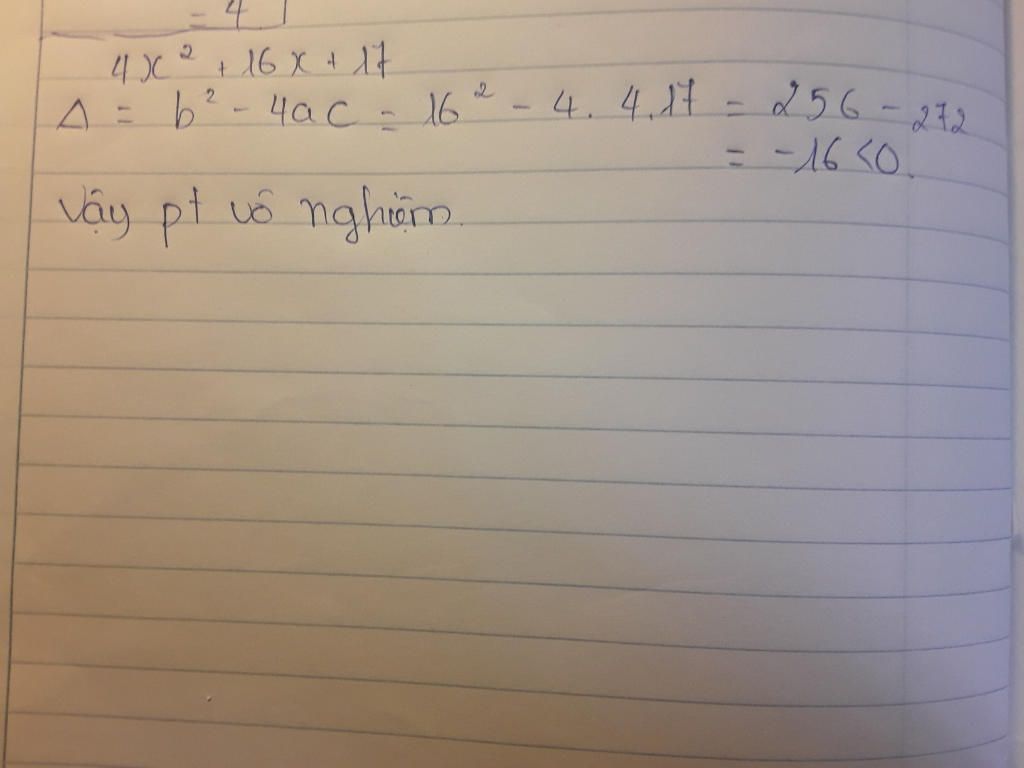 = 4
4x² + 16x + 17
Δ = b² - 4ac = 16² - 4. 4.17 = 256 - 272
= -16 < 0.
Vậy pt vô nghiệm.